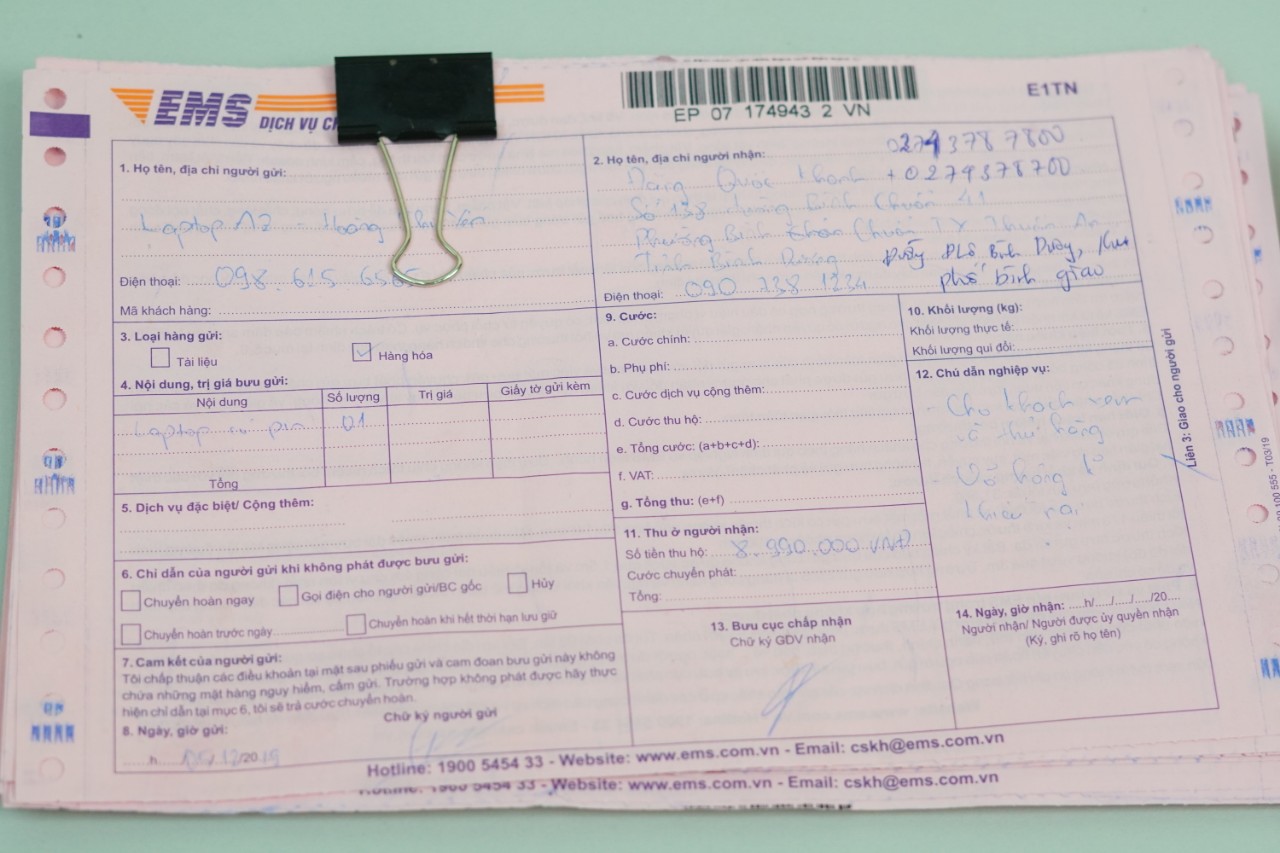 EMS
DỊCH VỤ CH
EP 07 174943 2 VN
E1TN
1. Họ tên, địa chỉ người gửi:
Laptop AZ - Hoàng
Điện thoại: 098 615 656
Mã khách hàng:
2. Họ tên, địa chỉ người nhận:
0274 378 7800
Đặng Quốc Khanh + 0279378700
Số 138 đường Bình Chuẩn 41
Phường Bình Chuẩn TX Thuận An
Tỉnh Bình Dương
phố bình giao
Điện thoại: 090 738 1234
3. Loại hàng gửi:
Tài liệu
Hàng hóa
4. Nội dung, trị giá bưu gửi:
Nội dung Số lượng Trị giá Giấy tờ gửi kèm
Laptop có pin 01
Tổng
5. Dịch vụ đặc biệt/ Cộng thêm:
6. Chỉ dẫn của người gửi khi không phát được bưu gửi:
Chuyển hoàn ngay
Gọi điện cho người gửi/BC gốc
Hủy
Chuyển hoàn trước ngày
Chuyển hoàn khi hết thời hạn lưu giữ
7. Cam kết của người gửi:
Tôi chấp thuận các điều khoản tại mặt sau phiếu gửi và cam đoan bưu gửi này không
chứa những mặt hàng nguy hiểm, cấm gửi. Trường hợp không phát được hãy thực
hiện chỉ dẫn tại mục 6, tôi sẽ trả cước chuyển hoàn.
Chữ ký người gửi
8. Ngày, giờ gửi:
h 05/12/2019
9. Cước:
a. Cước chính:
b. Phụ phí:
c. Cước dịch vụ cộng thêm:
d. Cước thu hộ:
e. Tổng cước: (a+b+c+d):
f. VAT:
g. Tổng thu: (e+f)
10. Khối lượng (kg):
Khối lượng thực tế:
Khối lượng qui đổi:
11. Thu ở người nhận:
Số tiền thu hộ: 8.990.000 VNĐ
Cước chuyển phát:
Tổng:
12. Chú dẫn nghiệp vụ:
- Cho khách xem
và thử hàng
khiếu nại
13. Bưu cục chấp nhận
Chữ ký GDV nhận
14. Ngày, giờ nhận: .....h/...../...../...../20.....
Người nhận/ Người được ủy quyền nhận
(Ký, ghi rõ họ tên)
Liên 3: Giao cho người gửi
100 555 - T03/19
Hotline: 1900 5454 33 - Website: www.ems.com.vn - Email: cskh@ems.com.vn
Hotline: 1900 5454 33 - Website: www.ems.com.vn - Email: cskh@ems.com.vn